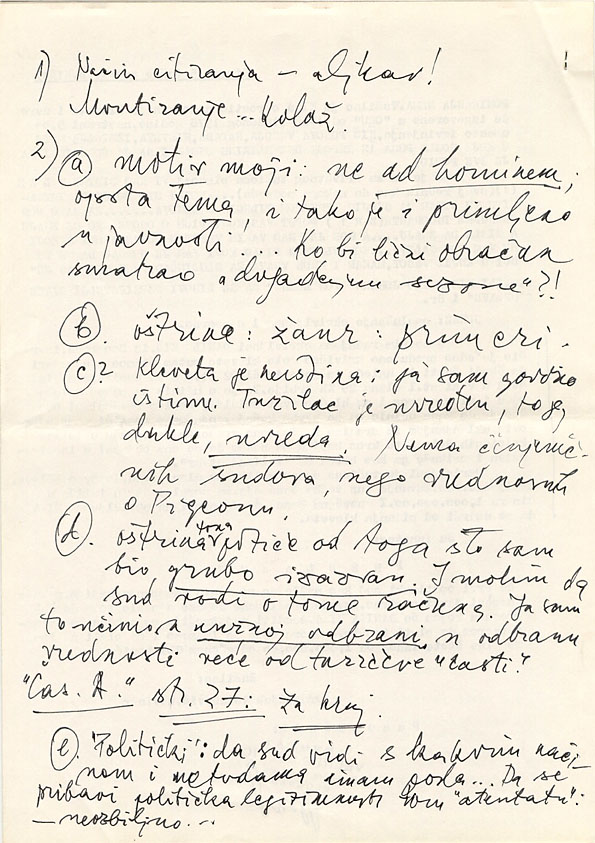 1) Način citiranja – aljkav!
Montiranje... Kolaž.
2) (a) motiv moji: ne ad hominem;
opšta tema, i tako je i primljeno
u javnosti... Ko bi lični obračun
smatrao "događajem sezone"?!
(b). oštrina: žanr, primeri.
(c)? Kleveta je neistina: ja sam govorio
istinu. Tužilac je uvređen, to je,
dakle, uvreda. Nema činjenič-
nih sudova, nego vrednovnih
o
(d). oštrina tona potiče od toga što sam
bio grubo izazvan. I molim da
sud vodi o tome računa. Ja sam
to učinio u nužnoj odbrani, u odbranu
vrednosti veće od tužiočeve "časti".
"Čas. A." str. 27: Za kraj.
(e). "Politički": da sud vidi s kakvim nači-
nom i metodama imam posla... Da se
pribavi politička legitimnost tom "atentatu":
– neozbiljno...